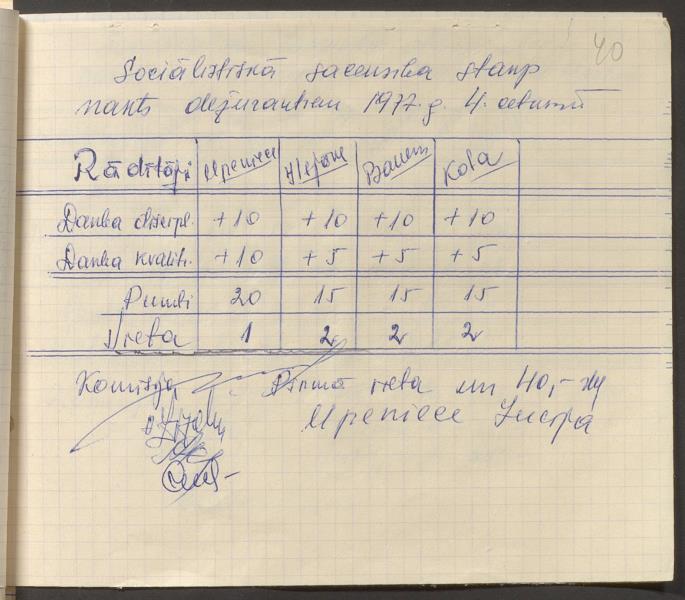 40
Sociālistiskā sacensība starp
nakts dežurantiem 1977.g. 4. ceturksnī
Rādītāji Upeniece Kola
Darba discipl. +10 +10 +10 +10
Darba kvalit. +10 +5 +5 +5
Punkti 20 15 15 15
Vieta 1 2 2 2
Komisija Pirmā vieta un 40,-
Upeniece